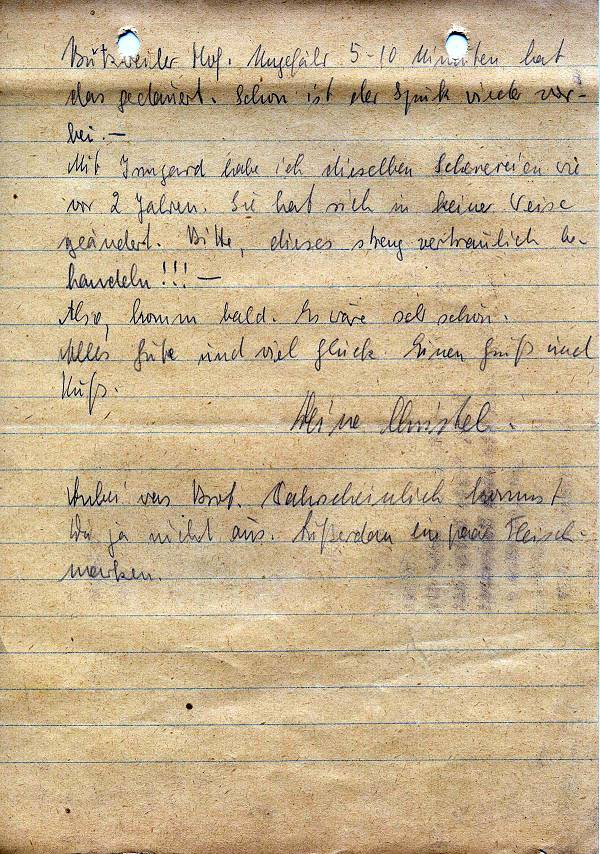 Butzweiler Hof. Ungefähr 5-10 Minuten hat
das gedauert. Schon ist der Spuk wieder vor-
bei. –
Mit Irmgard habe ich dieselben Scherereien wie
vor 2 Jahren. Sie hat sich in keiner Weise
geändert. Bitte, dieses streng vertraulich be-
handeln!!! –
Also, komm bald. Es wäre sehr schön.
Alles Gute und viel Glück. Einen Gruß und
Kuß.
Deine Christel.
Anbei was Brot. Wahrscheinlich kommst
Du ja nicht aus. Außerdem ein paar Fleisch-
marken.